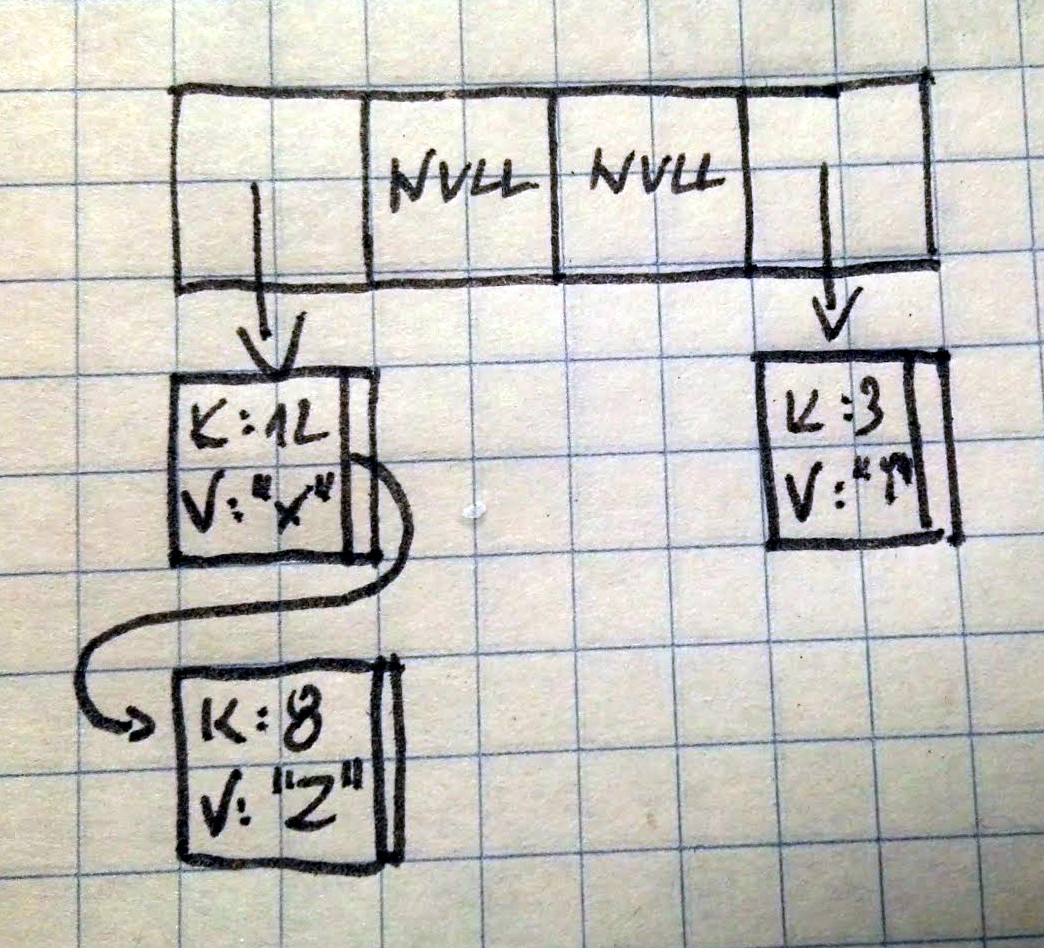 NULL NULL
K:12
V:"X"
K:3
V:"Y"
K:8
V:"Z"